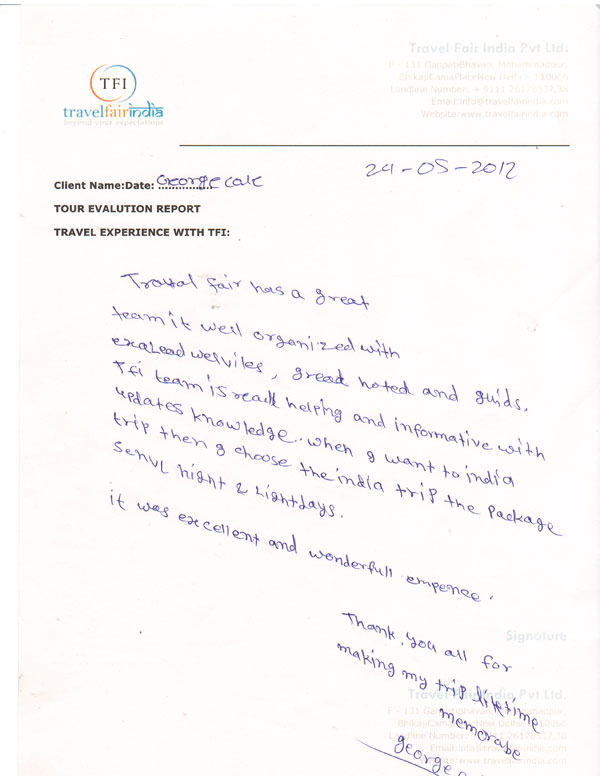 Travel Fair India Pvt Ltd.
F - 131 GanpatiBhavan, Mohammadpur,
BhikajiCamaPlaceNew Delhi - 110066
Landline Number: + 9111 26178537,38
Email:info@travelfairindia.com
Website:www.travelfairindia.com
TFI
travelfairindia
beyond your expectations
24-05-2012
Client Name:Date: George
TOUR EVALUTION REPORT
TRAVEL EXPERIENCE WITH TFI:
Fair has a great
team it well organized with
, noted and guids.
Tfi team is helping and informative with
updates knowledge. when g want to india
trip then g choose the india trip the package
night & Lightdays.
it was excellent and wonderfull
Thank you all for
making my trip
memorabe
george
Signature
Travel Fair India Pvt Ltd.
F - 131 GanpatiBhavan, Mohammadpur,
BhikajiCamaPlaceNew Delhi - 110066
Landline Number: + 9111 26178537,38
Email:info@travelfairindia.com
Website:www.travelfairindia.com